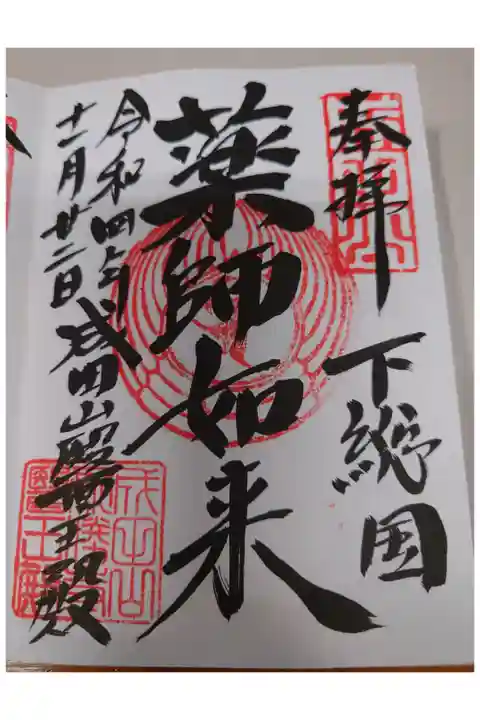 奉拝
下総国
薬師如来
成田山醫王殿
令和四年
十二月廿二日